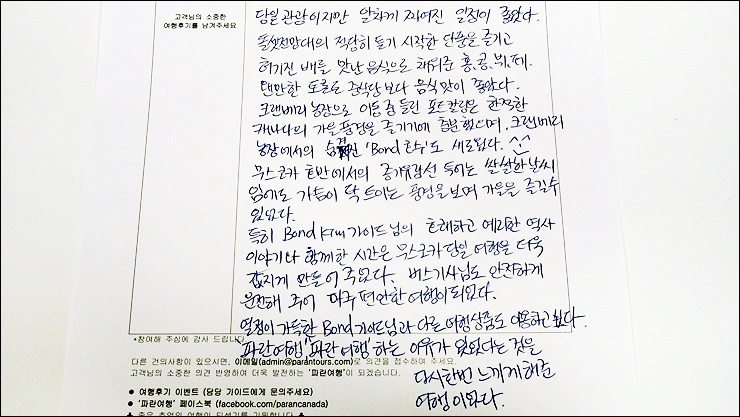 고객님의 소중한
여행후기를 남겨주세요
당일관광이지만 알차게 짜여진 일정이 좋았다.
돌셋전망대의 적당히 들기 시작한 단풍을 즐기고
허기진 배를 맛난 음식으로 채워준 홍.콩.뷔.페.
웬만한 토론토 중식당보다 음식맛이 좋았다.
크랜베리 농장으로 이동중 들린 포트칼링은 한적한
캐나다의 가을풍경을 즐기기에 충분했으며, 크랜베리
농장에서의 숨겨진 'Bond 호수'도 새로웠다.
무스코카 호반에서의 증기유람선 투어는 쌀쌀한 날씨
임에도 가슴이 탁 트이는 풍경을 보며 가을을 즐길수
있었다.
특히 Bond Kim 가이드님의 호쾌하고 예리한 역사
이야기와 함께한 시간은 무스코카 당일 여행을 더욱
값지게 만들어 주었다. 버스기사님도 안전하게
운전해 주어 아주 편안한 여행이 되었다.
열정이 가득한 Bond 가이드님과 다른 여행상품도 이용하고 싶다.
파란여행" 파란여행" 하는 이유가 있었다는 것을
다시한번 느끼게 해준
여행이었다.
*참여해 주심에 감사 드립니다
다른 건의사항이 있으시면, 이메일(admin@parantours.com)로 의견을 접수하여 주세요.
고객님의 소중한 의견 반영하여 더욱 발전하는 '파란여행'이 되겠습니다.
● 여행후기 이벤트 (담당 가이드에게 문의주세요)
● '파란여행' 페이스북 (facebook.com/parancanada)